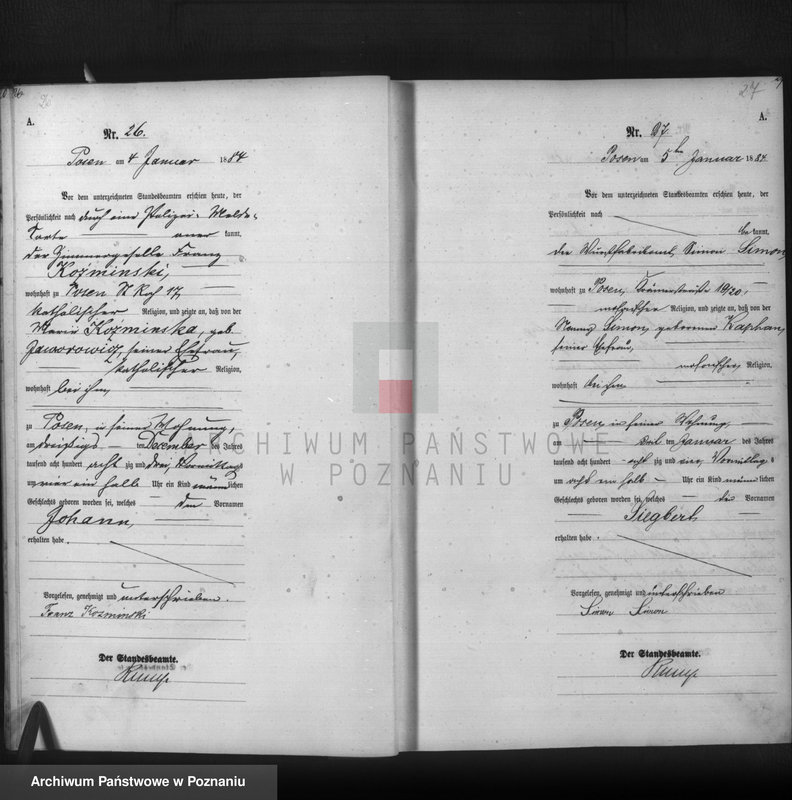 26
A.
Nr. 26.
Posen am 4 Januar 1884
Vor dem unterzeichneten Standesbeamten erschien heute, der
Persönlichkeit nach durch eine Polizei- Melde-
Karte aner kannt,
der Zimmergeselle Franz
Koźminski,
wohnhaft zu Posen 17,
katholischer Religion, und zeigte an, daß von der
Maria Koźminska, geb.
Jaworowicz, seiner Ehefrau,
katholischer Religion,
wohnhaft bei ihm,
zu Posen, in seiner Wohnung,
am dreißigsten December des Jahres
tausend acht hundert acht zig und drei, Vormittags
um vier ein halb Uhr ein Kind männlichen
Geschlechts geboren worden sei, welches den Vornamen
Johann,
erhalten habe.
Vorgelesen, genehmigt und unterschrieben.
Franz Koźminski
Der Standesbeamte.
27
A.
Nr. 27.
Posen am 5ten Januar 1884
Vor dem unterzeichneten Standesbeamten erschien heute, der
Persönlichkeit nach
be kannt,
der Wurstfabrikant, Simon Simon,
wohnhaft zu Posen, Krämerstraße 19/20,
mosaischer Religion, und zeigte an, daß von der
Simon, geborene Kaphan,
seiner Ehefrau,
mosaischer Religion,
wohnhaft bei ihm
zu Posen in seiner Wohnung
am drei ten Januar des Jahres
tausend acht hundert acht zig und vier, Vormittags
um acht ein halb Uhr ein Kind männlichen
Geschlechts geboren worden sei, welches die Vornamen
Siegbert
erhalten habe.
Vorgelesen, genehmigt und unterschrieben
Simon Simon
Der Standesbeamte.
ARCHIWUM PAŃSTWOWE
W POZNANIU
Archiwum Państwowe w Poznaniu